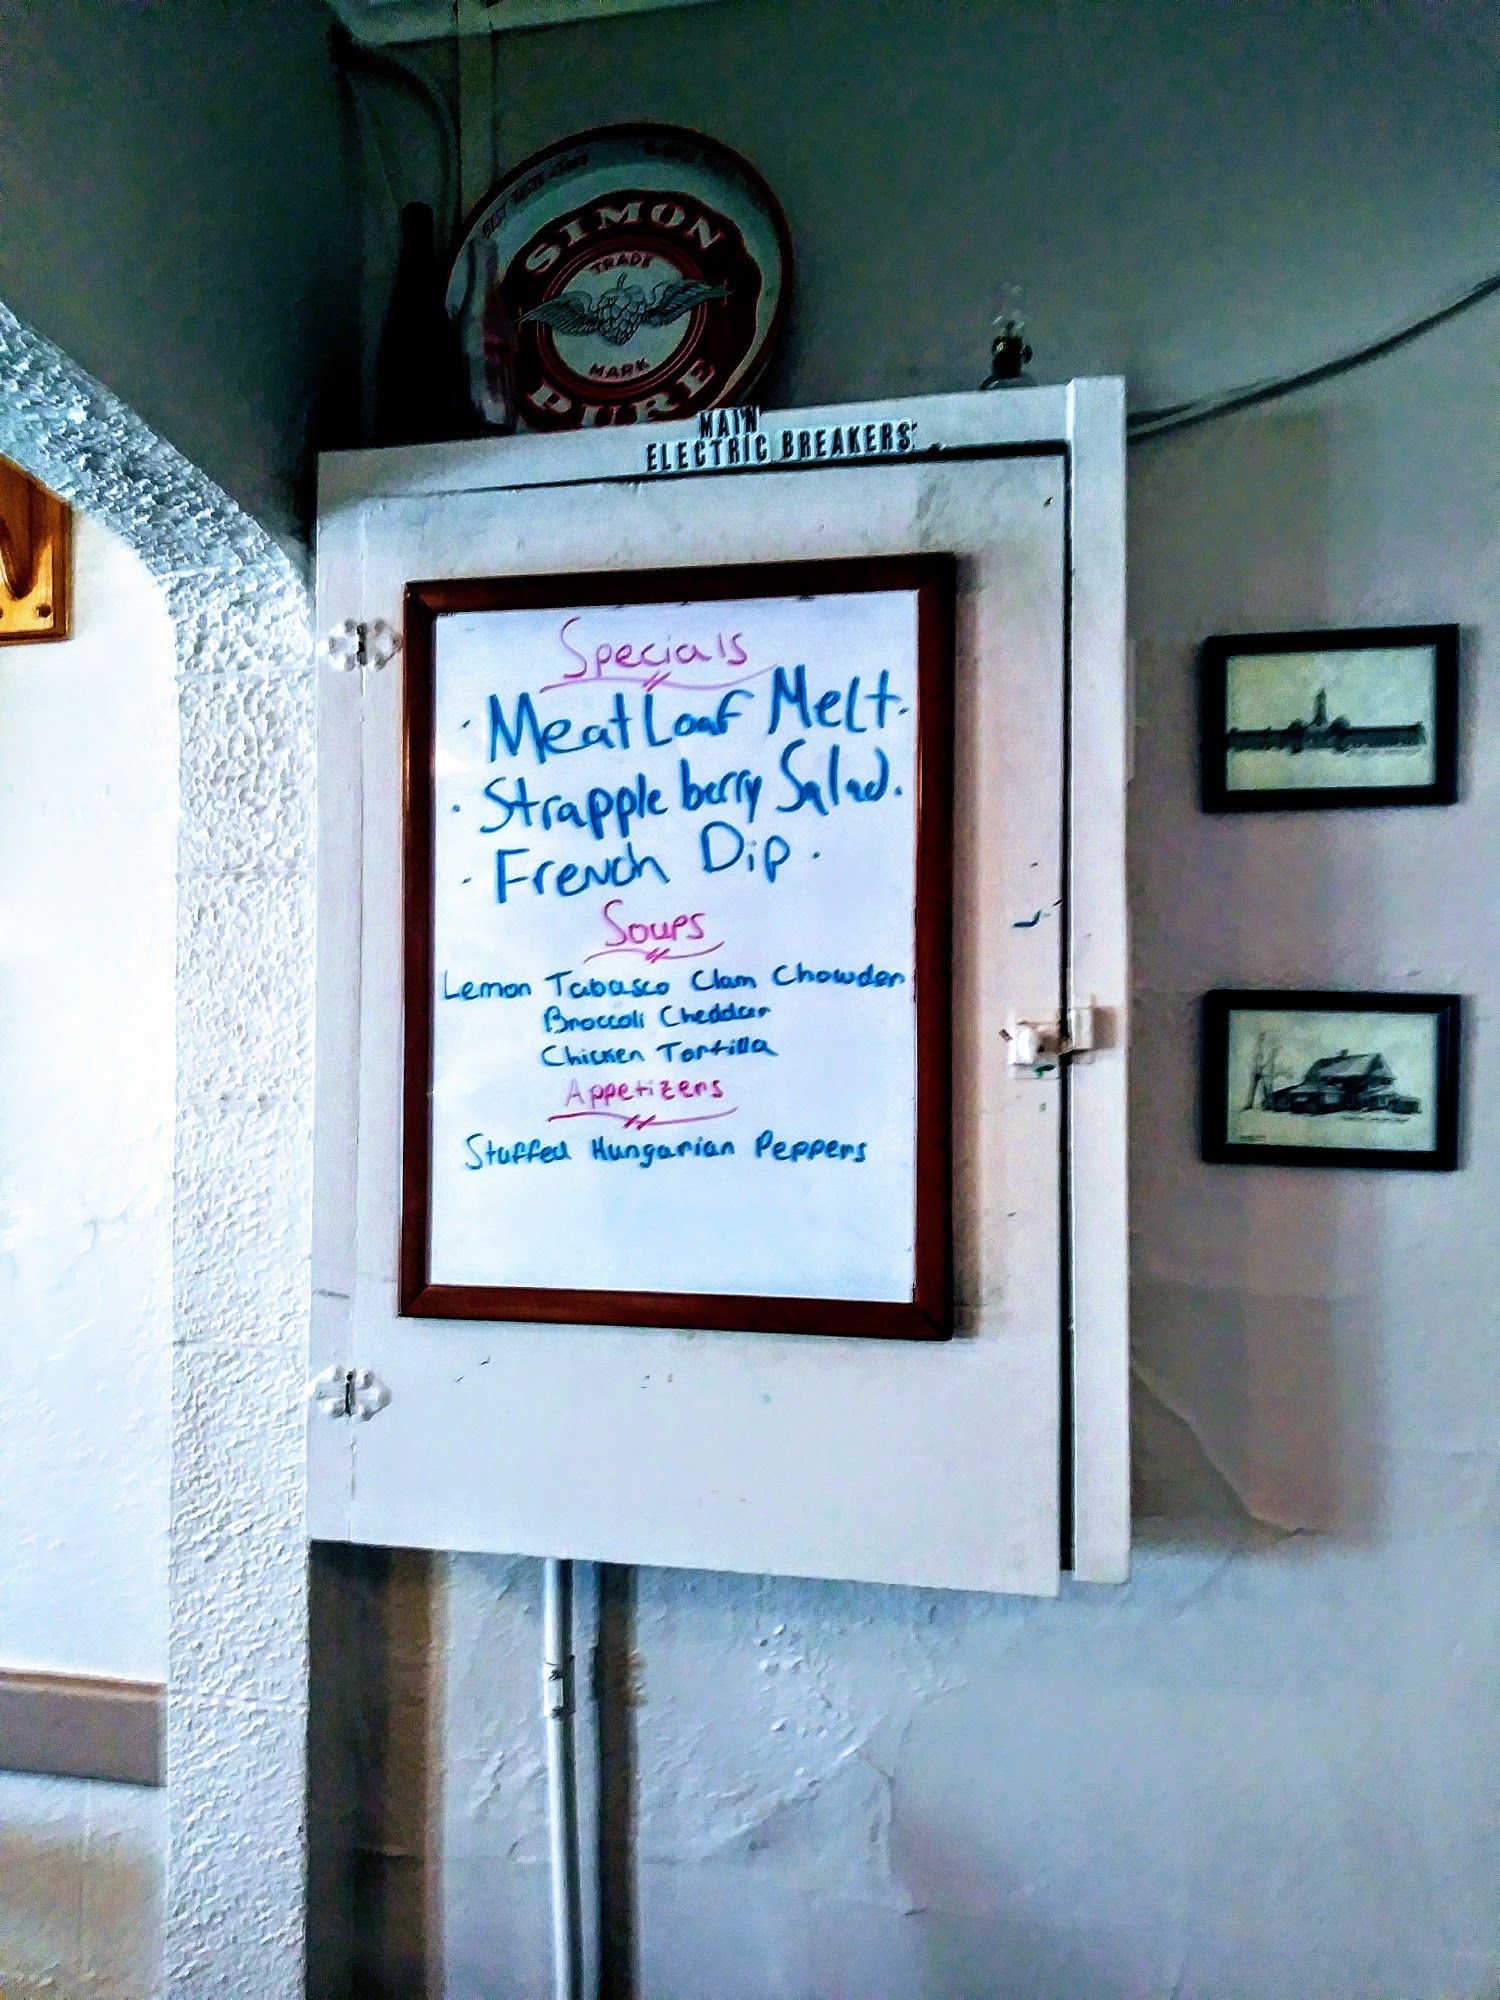 SIMON
TRADE
MARK
PURE
MAIN
ELECTRIC BREAKERS
Specials
· MeatLoaf Melt.
· Strapple berry Salad.
· French Dip.
Soups
Lemon Tabasco Clam Chowder
Broccoli Cheddar
Chicken Tortilla
Appetizers
Stuffed Hungarian Peppers